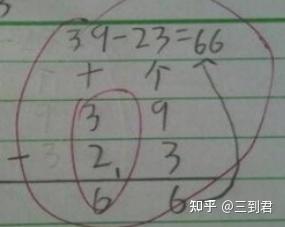 39-23=66
十 个
3 9
- 2 3
6 6
知乎 @三到君